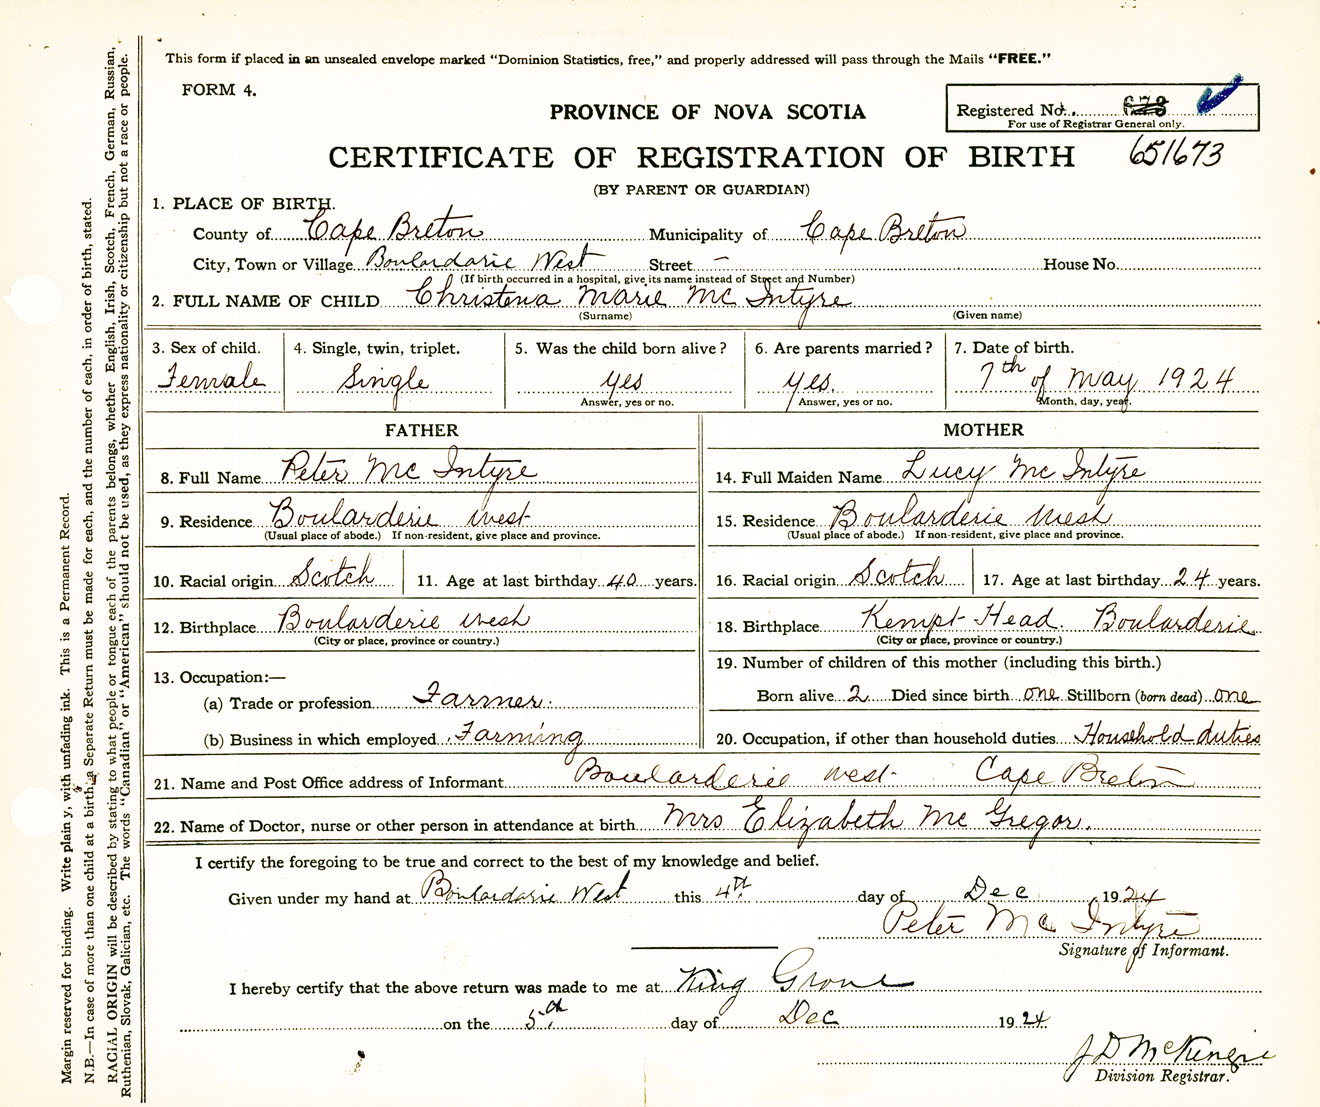 This form if placed in an unsealed envelope marked "Dominion Statistics, free," and properly addressed will pass through the Mails "FREE."
FORM 4.
PROVINCE OF NOVA SCOTIA
Registered No.
For use of Registrar General only.
CERTIFICATE OF REGISTRATION OF BIRTH 651673
(BY PARENT OR GUARDIAN)
1. PLACE OF BIRTH.
County of Cape Breton Municipality of Cape Breton
City, Town or Village Boulardarie West Street – House No.
(If birth occurred in a hospital, give its name instead of Street and Number)
2. FULL NAME OF CHILD Christena Marie Mc Intyre
(Surname) (Given name)
3. Sex of child. 4. Single, twin, triplet. 5. Was the child born alive? 6. Are parents married? 7. Date of birth.
Female Single yes yes. 7th of May 1924
Answer, yes or no. Answer, yes or no. Month, day, year.
FATHER MOTHER
8. Full Name Peter Mc Intyre 14. Full Maiden Name Lucy Mc Intyre
9. Residence Boularderie west 15. Residence Boularderie West
(Usual place of abode.) If non-resident, give place and province. (Usual place of abode.) If non-resident, give place and province.
10. Racial origin Scotch 11. Age at last birthday 40 years. 16. Racial origin Scotch 17. Age at last birthday 24 years.
12. Birthplace Boularderie west 18. Birthplace Kempt Head. Boularderie
(City or place, province or country.) (City or place, province or country.)
13. Occupation:— 19. Number of children of this mother (including this birth.)
(a) Trade or profession Farmer. Born alive 2 Died since birth one Stillborn (born dead) one
(b) Business in which employed Farming 20. Occupation, if other than household duties Household duties
21. Name and Post Office address of Informant Boularderie west Cape Breton
22. Name of Doctor, nurse or other person in attendance at birth Mrs Elizabeth Mc Gregor.
I certify the foregoing to be true and correct to the best of my knowledge and belief.
Given under my hand at Boulardarie West this 4th day of Dec 1924
Peter Mc Intyre
Signature of Informant.
I hereby certify that the above return was made to me at King Grove
on the 5th day of Dec 1924
J D McKenzie
Division Registrar.
Margin reserved for binding. Write plainly, with unfading ink. This is a Permanent Record.
N.B.—In case of more than one child at a birth, a Separate Return must be made for each, and the number of each, in order of birth, stated.
RACIAL ORIGIN will be described by stating to what people or tongue each of the parents belongs, whether English, Irish, Scotch, French, German, Russian,
Ruthenian, Slovak, Galician, etc. The words "Canadian" or "American" should not be used, as they express nationality or citizenship but not a race or people.